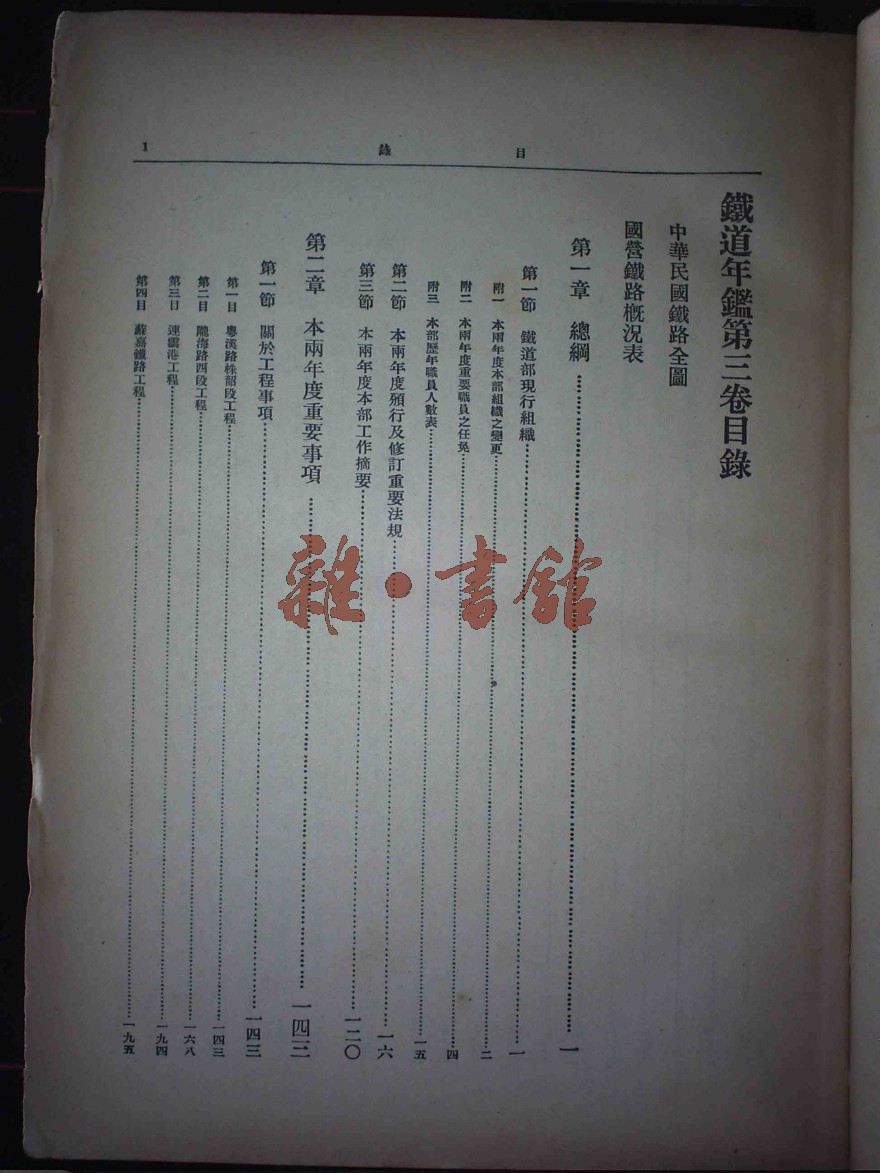 目錄
1
鐵道年鑑第三卷目錄
中華民國鐵路全圖
國營鐵路概況表
第一章 總綱……一
第一節 鐵道部現行組織……一
附一 本兩年度本部組織之變更……二
附二 本兩年度重要職員之任免……四
附三 本部歷年職員人數表……一五
第二節 本兩年度頒行及修訂重要法規……一六
第三節 本兩年度本部工作摘要……一二〇
第二章 本兩年度重要事項……一四三
第一節 關於工程事項……一四三
第一目 粵漢路株韶段工程……一四三
第二目 隴海路西段工程……一六八
第三目 連雲港工程……一九四
第四目 蘇嘉鐵路工程……一九五
雜·書館